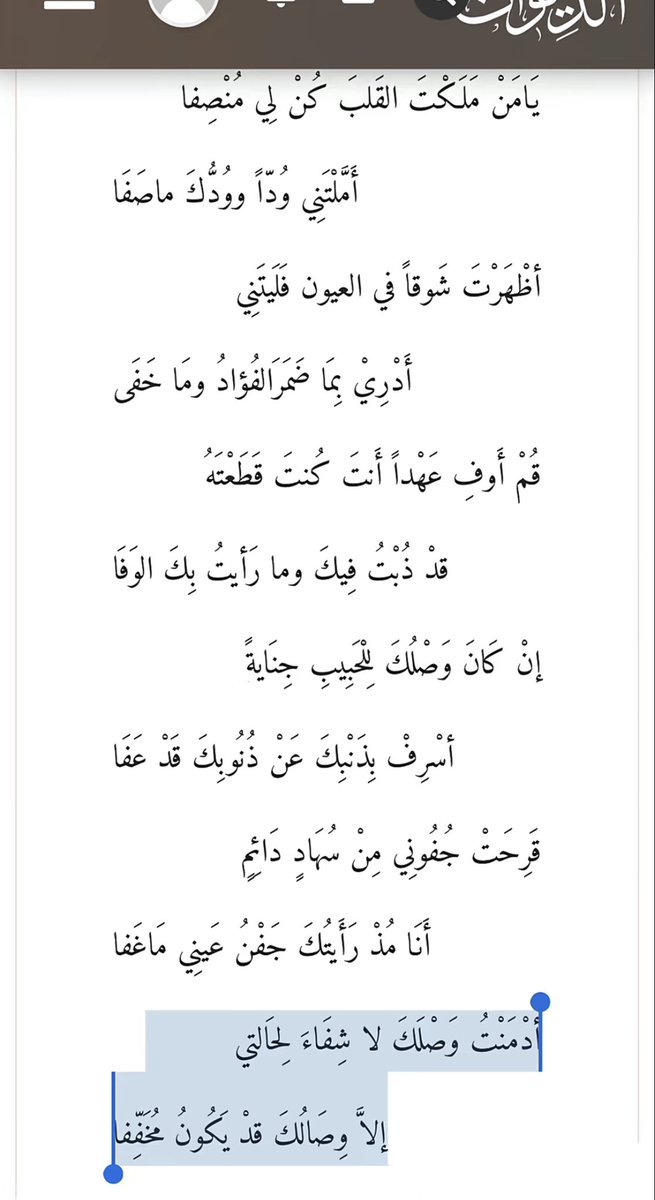 الديوان
يَامَنْ مَلَكْتَ القَلبَ كُنْ لِي مُنْصِفا
أَمَّلْتَنِي وُدّاً وَوُدُّكَ ماصَفَا
أظْهَرْتَ شَوقاً في العيون فَلَيتَنِي
أَدْرِيْ بِمَا ضَمَرَالفُؤادُ ومَا خَفَى
قُمْ أَوفِ عَهْداً أَنتَ كُنتَ قَطَعْتَهُ
قدْ ذُبْتُ فِيكَ وما رَأيتُ بِكَ الوَفَا
إنْ كَانَ وَصْلُكَ لِلْحَبِيبِ جِنَايةً
أسْرِفْ بِذَنْبِكَ عَنْ ذُنُوبِكَ قَدْ عَفَا
قَرِحَتْ جُفُونِي مِنْ سُهَادٍ دَائِمٍ
أَنَا مُذْ رَأَيتُكَ جَفْنُ عَينِي مَاغَفا
أدْمَنْتُ وَصْلَكَ لا شِفَاءَ لِحَالتي
إلاَّ وِصَالُكَ قدْ يَكُونُ مُخَفِّفا